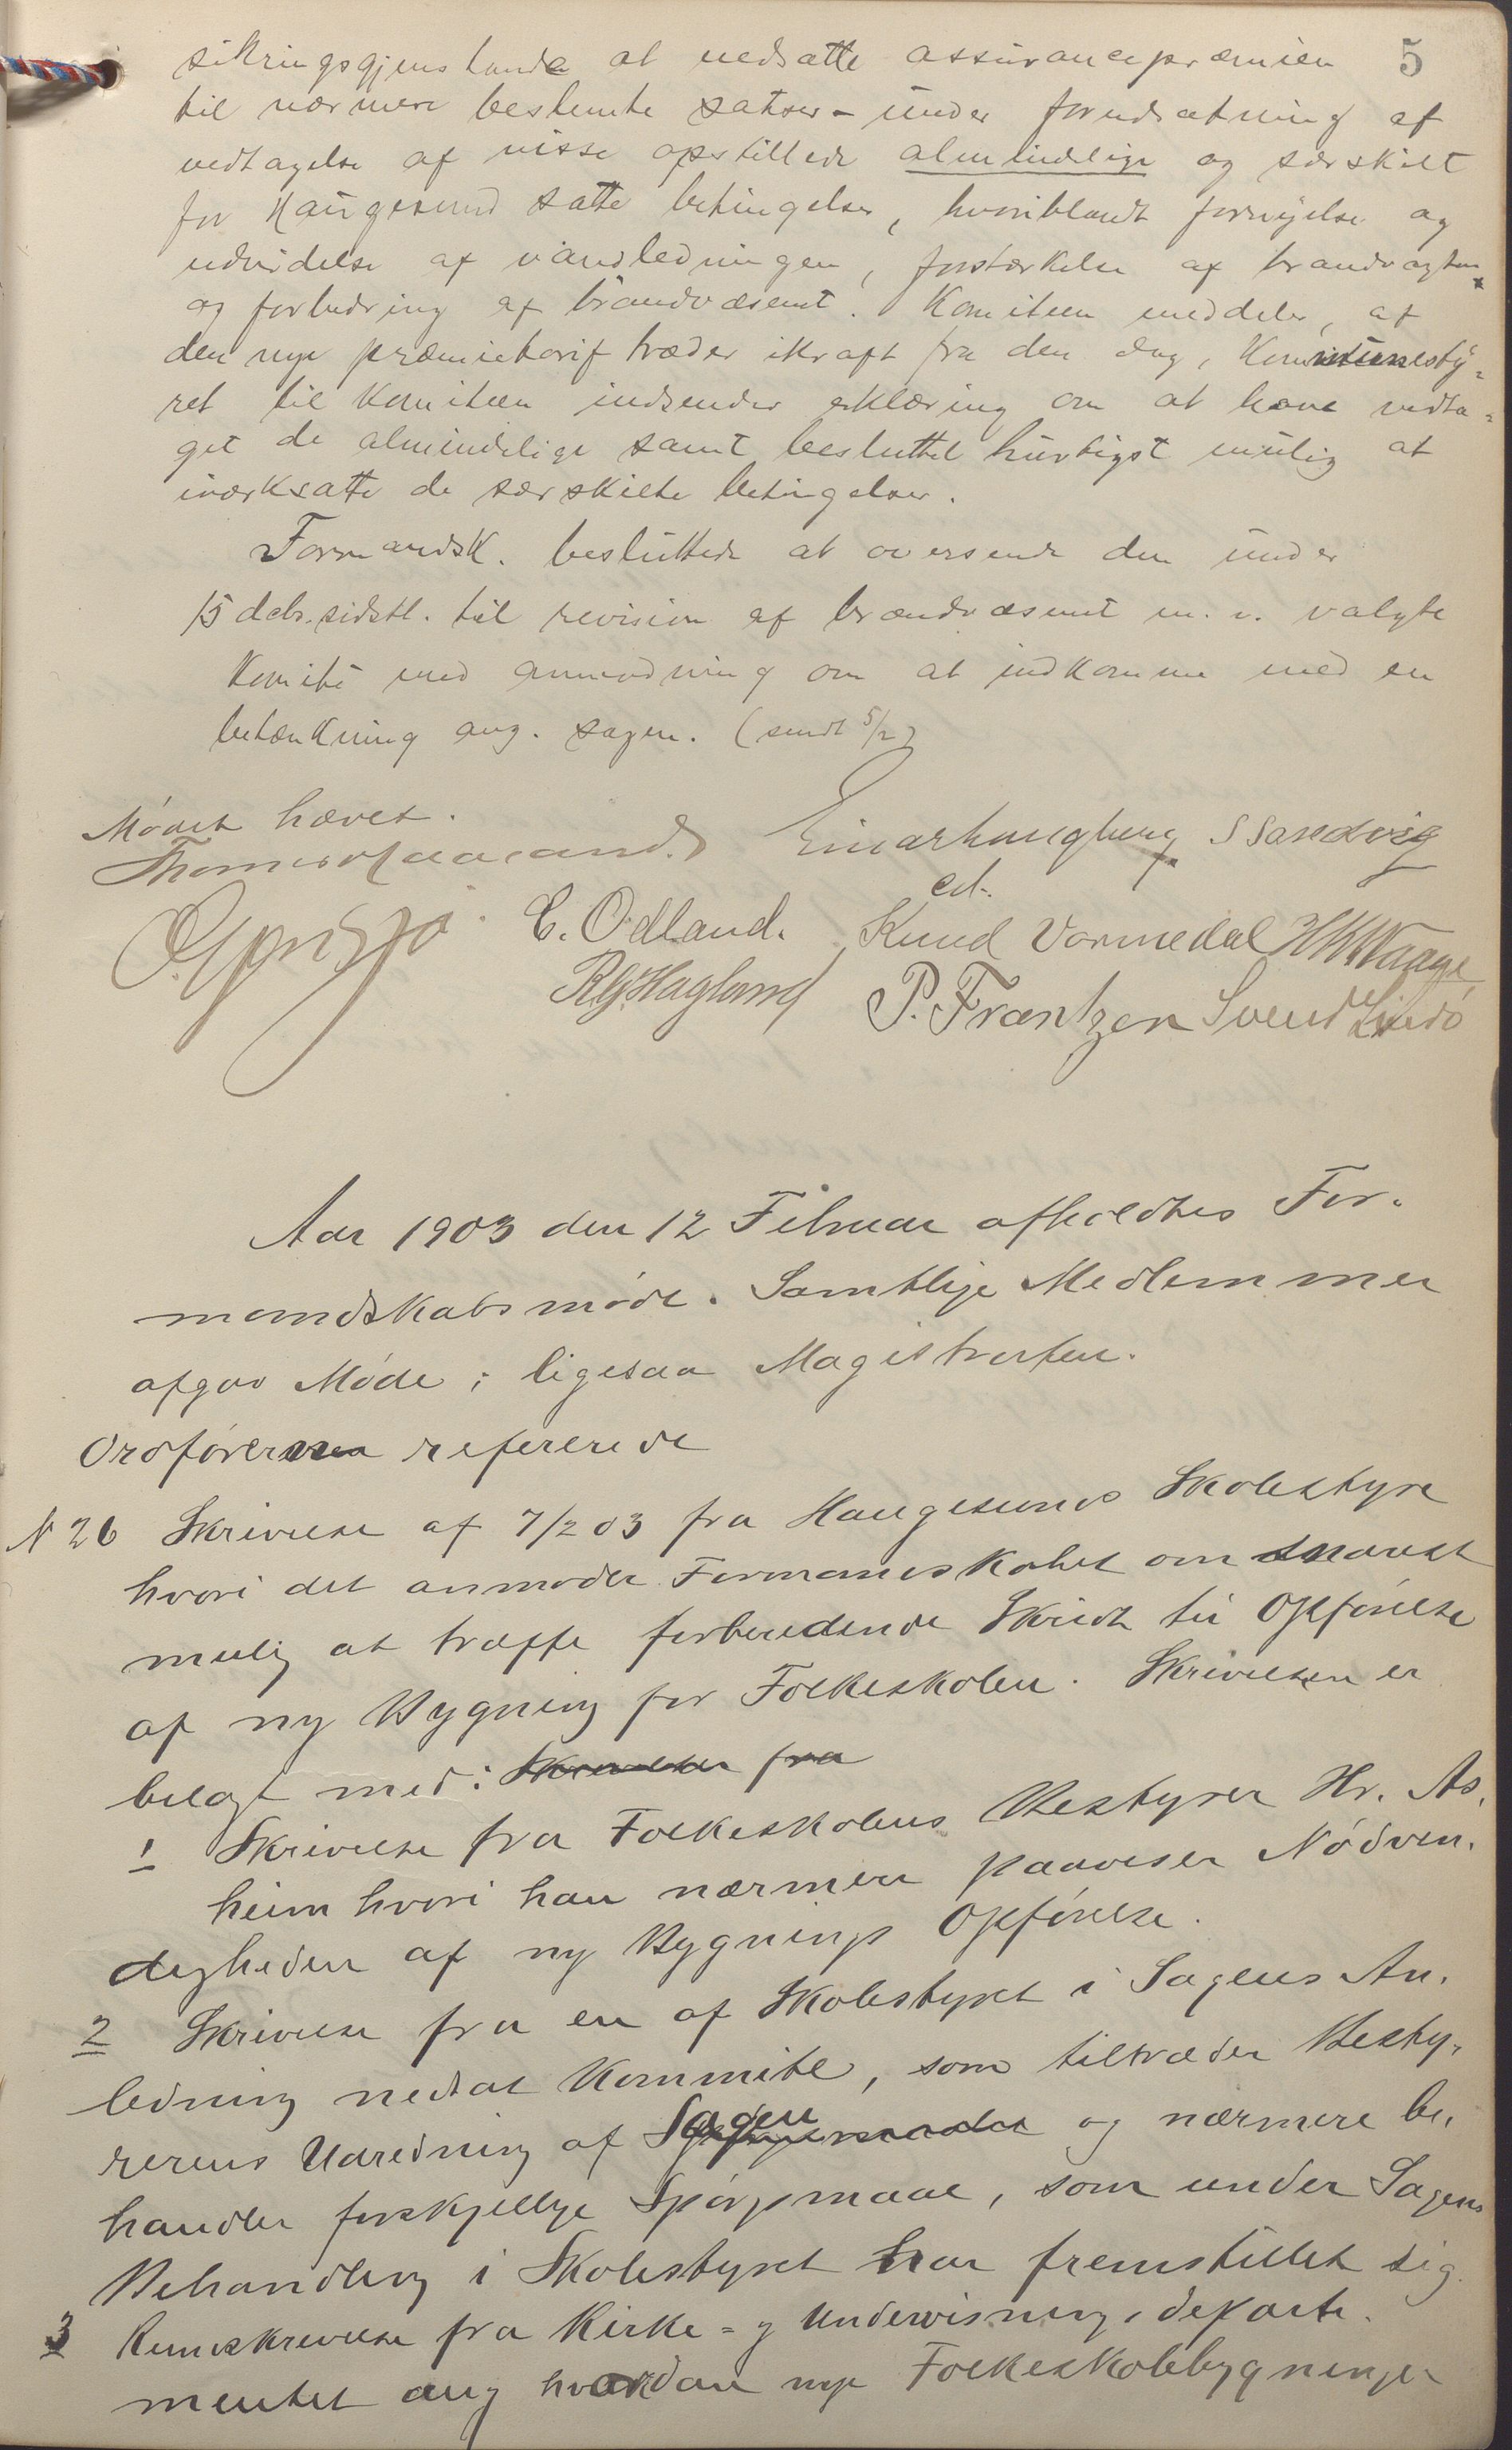 5
sikringsgjenstande at nedsætte assurancepræmien
til nærmere bestemte satser - under forudsætning af
vedtagelse af visse opstillede almindelige og særskilt
for Haugesund satte betingelser, hvoriblandt fornyelse og
udvidelse af vandledningen, forstærkelse af brandvagten
og forbedring af brandvæsenet. Komiteen meddeler, at
den nye præmietarif træder ikraft fra den dag, Kommunesty=
ret til Komiteen indsender erklæring om at have vedta=
get de almindelige samt besluttet hurtigst mulig at
iværksætte de særskilte betingelser.
Formandsk. besluttede at oversende den under
15 debr. sidstl. til revision af brandvæsenet m. v. valgte
Komite med anmodning om at indkomme med en
betænkning ang. sagen. (sendt 5/2)
Mødet hævet.
Einar Haugberg S Sandvig
cst.
C. Odland. Knud Vormedal HKWaage
RGHagland P. Frantzen Svend Lindø
Aar 1903 den 12 Februar afholdtes For-
mandskabsmøde. Samtlige Medlemmer
afgav Møde; ligesaa Magistraten.
Ordføreren refererede
N 26 Skrivelse af 7/2 03 fra Haugesunds Skolestyre
hvori det anmoder Formandskabet om snarest
mulig at træffe forberedende Skridt til Opførelse
af ny Bygning for Folkeskolen. Skrivelsen er
belagt med: Skrivelse fra
1 Skrivelse fra Folkeskolens Bestyrer Hr. As-
heim hvori han nærmere paaviser Nødven-
digheden af ny Bygnings Opførelse.
2 Skrivelse fra en af Skolestyret i Sagens An-
ledning nedsat Kommite, som tiltræder Besty-
rerens Udredning af Sagen og nærmere be-
handler forskjellige Spørgsmaal, som under Sagens
Behandling i Skolestyret har fremstillet sig.
3 Rundskrivelse fra Kirke= og Undervisnings departe-
mentet ang hvordan nye Folkeskolebygninger